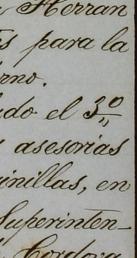 Herran
para la
rno.
do el 3º
asesorias
inillas, en
Superinten-
Cordova